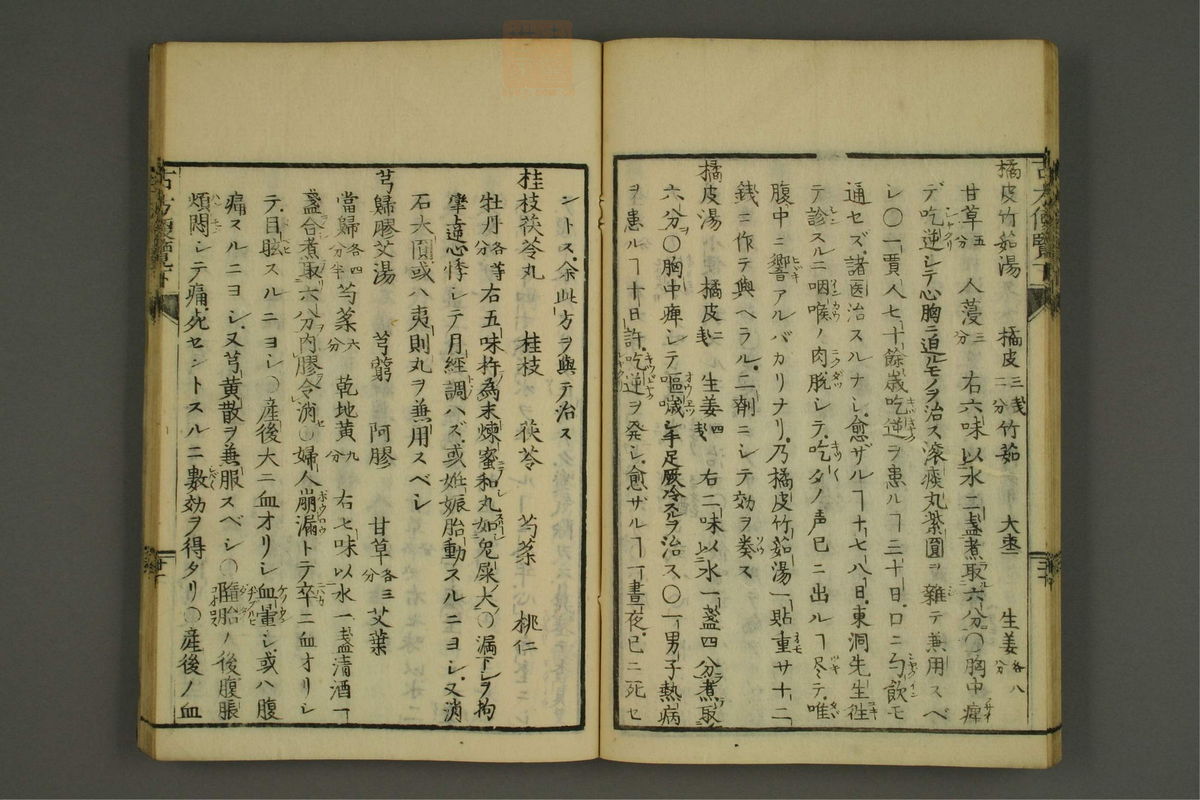 橘皮竹茹湯 橘皮三戔二分竹茹 大棗 生姜各八分
甘草五分 人蓡三分 右六味以水二盞煮取六分〇胸中痺
デ吃逆シテ心胸ニ迫ルモノヲ治ス滚痰丸紫圓ヲ雜テ兼用スベ
シ〇一賈人七十餘歳吃逆ヲ患ルヿ三十日口ニ勺飲モ
通セズ諸医治スルナシ愈ザルヿ十七八日東洞先生徃
テ診スルニ咽喉ノ肉脱シテ吃々ノ声已ニ出ルヿ尽テ唯
腹中ニ響アルバカリナリ乃橘皮竹茹湯一貼重サ十二
銭ニ作テ與ヘラル二剤ニシテ効ヲ奏ス
橘皮湯 橘皮二戔 生姜四戔 右二味以水一盞四分煮取
六分〇胸中痺シテ嘔噦シ手足厥冷スルヲ治ス〇一男子熱病
ヲ患ルヿ十日許吃逆ヲ発シ愈ザルヿ一晝夜已ニ死セ
ントス余此方ヲ與テ治ス
桂枝茯苓丸 桂枝 茯苓 芍薬 桃仁
牡丹各等分 右五味杵為末煉蜜和丸如兎屎大〇漏下シヲ拘
攣上逆心悸シテ月經調ハズ或妊娠胎動スルニヨシ又消
石大圓或ハ夷則丸ヲ兼用スベシ
芎歸膠艾湯 芎藭 阿膠 甘草各三分 艾葉
當歸各四分半 芍薬六分 乾地黄九分 右七味以水一盞清酒一
盞合煮取六八分内膠令消〇婦人崩漏トテ卒ニ血オリシ
テ目眩スルニヨシ〇産後大ニ血オリシ血暈シ或ハ腹
痛スルニヨシ又芎黄散ヲ兼服スベシ〇墮胎ノ後腹脹
煩悶シテ痛死セントスルニ數効ヲ得タリ〇産後ノ血